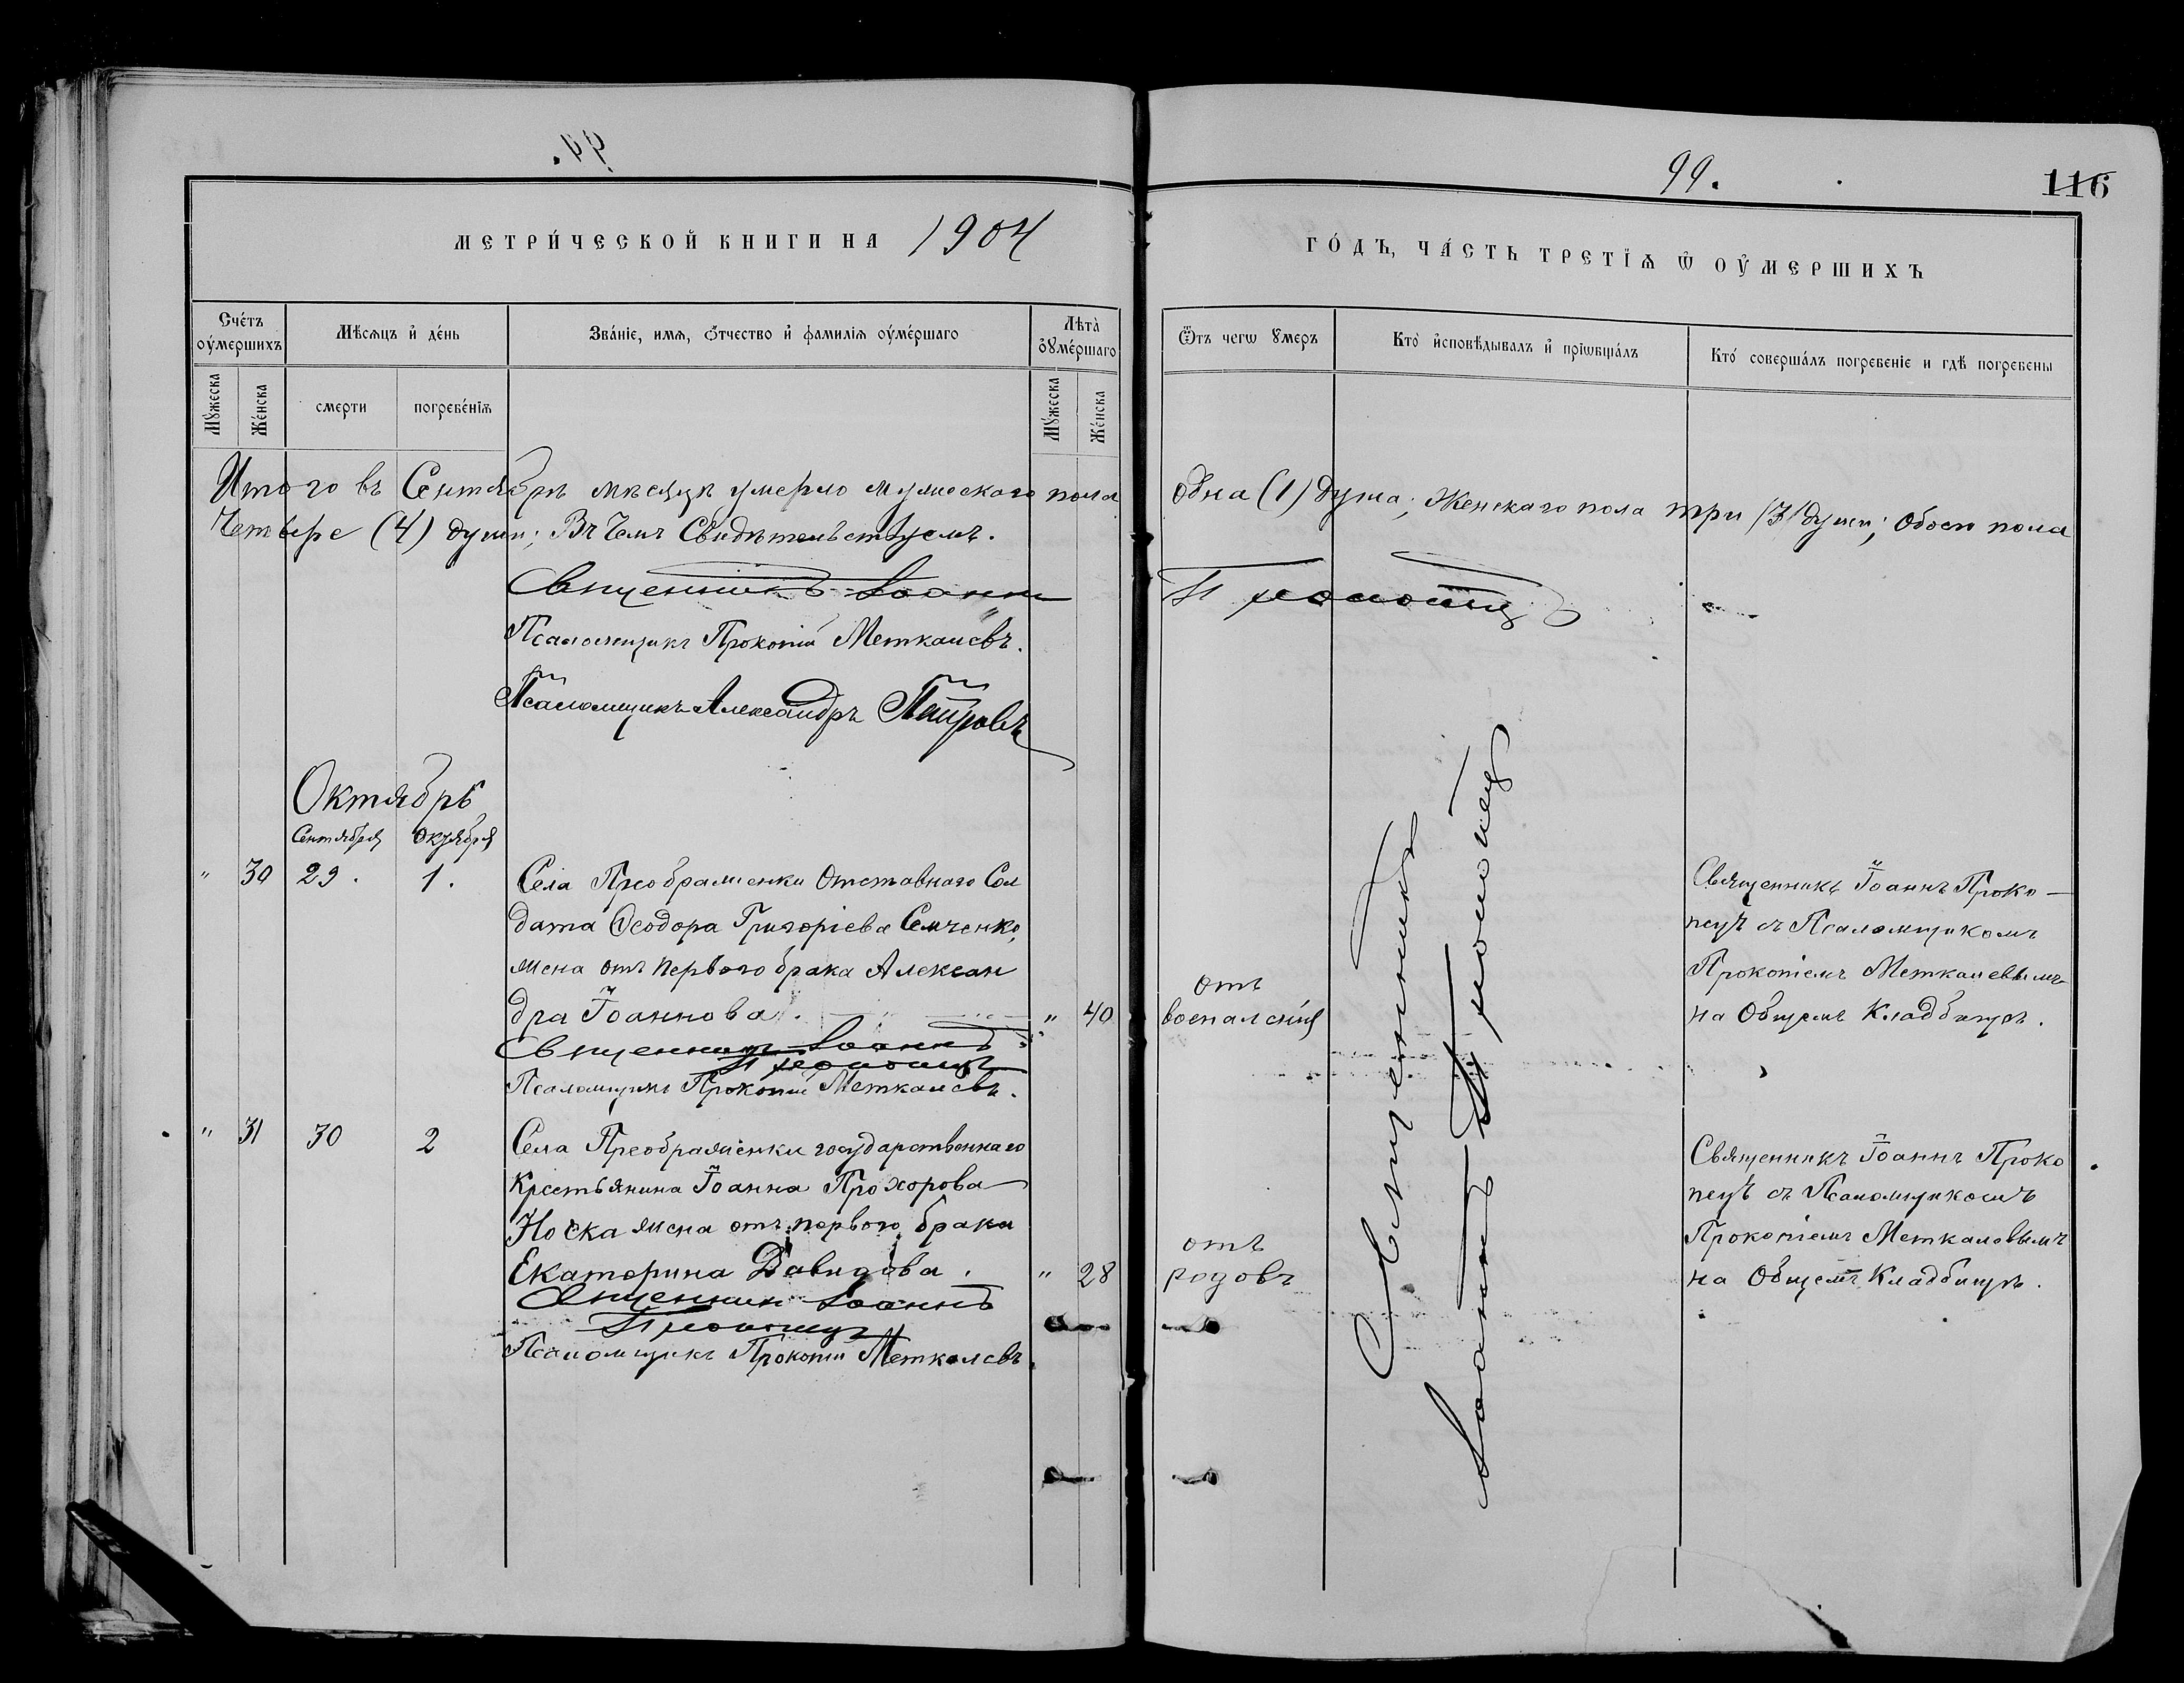 99.
116
МЕТРИ́ЧЕСКОЙ КНИГИ НА 1904
ГО́ДЪ, ЧА́СТЬ ТРЕТІѦ Ѡ ОУ҆МЕРШИХЪ
Сче́тъ оу҆́мершихъ
Мѣсѧцъ и҆ де́нь
Зва́нїе, имѧ, ѻ҆́тчество и҆ фамилїѧ оу҆ме́ршаго
Лѣта̀ оу҆ме́ршаго
Ѿтъ чегѡ ꙋмеръ
Кто̀ и҆сповѣ́дывалъ и҆ прїѡбща́лъ
Кто́ соверша́лъ погребенїе и гдѣ погребены
Мꙋ́жеска
Же́нска
смерти
погребе́нїѧ
Мꙋ́жеска
Же́нска
Итого въ Сентябрѣ мѣсяцѣ умерло мужескаго пола одна (1) душа; Женскаго пола три (3) души; обоего пола
Четыре (4) души; Въ Чемъ Свидѣтельствуемъ.
Священникъ Іоаннъ Прокопецъ
Псаломщикъ Прокопій Меткалевъ.
Псаломщикъ Александръ Петровъ
Октябрь
Сентября Октября
" 30 29. 1. Села Преображенки Отставного Сол
дата Ѳеодора Григоріева Семченко,
жена отъ первого брака Алексан
дра Іоаннова. " 40
отъ
воспаленія
Священникъ Іоаннъ
Прокопецъ
Псаломщикъ Прокопій Меткалевъ.
Священникъ Іоаннъ Проко-
пецъ съ Псаломщикомъ
Прокопіемъ Меткалевымъ
на Общемъ Кладбищѣ.
" 31 30 2 Села Преображенки государственнаго
Крестьянина Іоанна Прохорова
Носка жена отъ первого брака
Екатерина Давидова. " 28
отъ
родовъ
Священникъ Іоаннъ
Прокопецъ
Псаломщикъ Прокопій Меткалевъ.
Священникъ Іоаннъ Проко
пецъ съ Псаломщикомъ
Прокопіемъ Меткалевымъ
на Общемъ Кладбищѣ.
Священникъ
Іоаннъ Прокопецъ